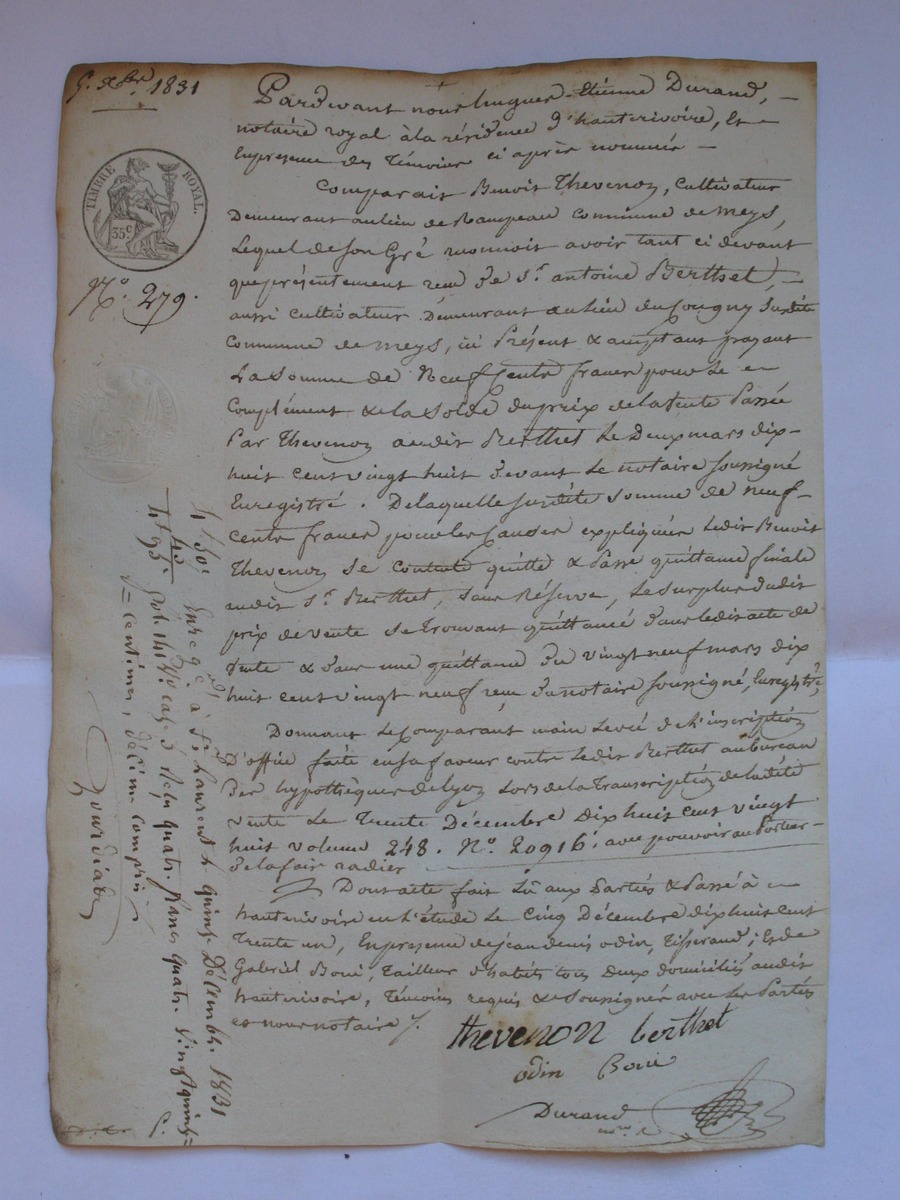 5. Xbre. 1831
TIMBRE ROYAL.
35c.
No. 279.
Pardevant nous hugues Etienne Durand,
notaire royal à la résidence d'hauterivoire, Et
En présence des Témoins ci après nommés
Comparait Benoit Thevenon, Cultivateur
Demeurant au lieu de Rampeau Commune de Meys,
Lequel de son Gré reconnoit avoir tant ci devant
que présentement reçu de Sr. antoine Berthet,
aussi cultivateur Demeurant au lieu du Cougny susdite
Commune de Meys, ici Présent & acceptant payant
La Somme de Neuf Cents francs pour Le
Complément & la Solde du prix de la Vente Passée
Par Thevenon audit Berthet Le Deux mars dix-
huit cent vingt huit devant Le notaire soussigné
Enregistré. De laquelle susdite Somme de neuf-
cents francs pour les Causes expliquées Ledit Benoit
Thevenon Se Contente quitte & Passe quittance finale
audit Sr. Berthet, sans Réserve, Le surplus dudit
prix de vente Se Trouvant quittancé dans ledit acte de
Vente & dans une quittance du vingt neuf mars dix
huit cent vingt neuf reçu du notaire soussigné, Enregistrée,
Donnant Le Comparant main Levée de L'inscription
D'office faite en sa faveur contre Ledit Berthet au bureau
Des hypothèques de Lyon Lors de la Transcription de la dite
vente Le Trente Décembre Dix huit cent vingt
huit volume 248. No. 20916. avec pouvoir au Portier
de la fair radier
Dont acte fait Lu aux Parties & Passé à
hauterivoire en L'étude Le Cinq Décembre dix huit cent
Trente un, En présence de jean denis odin, Tisserand; Et de
Gabriel Boui, Tailleur d'habits tous deux domiciliés audit
hauterivoire, Témoins requis & Soussignés avec Les Parties
et nous notaire
thevenon berthet
odin Boui
Durand
4f 50c Enregé. à St. Laurent le quinze Décembre 1831
45
4f 95c quatre francs quatre vingt quinze
centimes, décime compris
Gourdiat